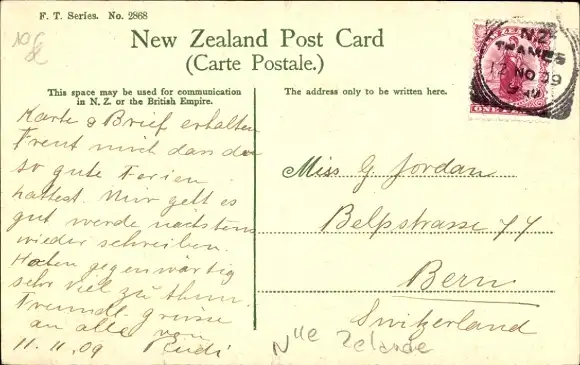 F. T. Series. No. 2868
New Zealand Post Card
(Carte Postale.)
This space may be used for communication
in N. Z. or the British Empire.
The address only to be written here.
N.Z.
THAMES
12 NO 09
ONE
Karte & Brief erhalten
Freut mich dass du
so gute Ferien
hattest. Mir geht es
gut werde nächstens
wieder schreiben.
Haben gegenwärtig
sehr viel zu thun.
Freundl. grüsse
an alle von
11.11.09 Rudi
Miss G Jordan
Belpstrasse 77
Bern
Switzerland
Nlle Zelande